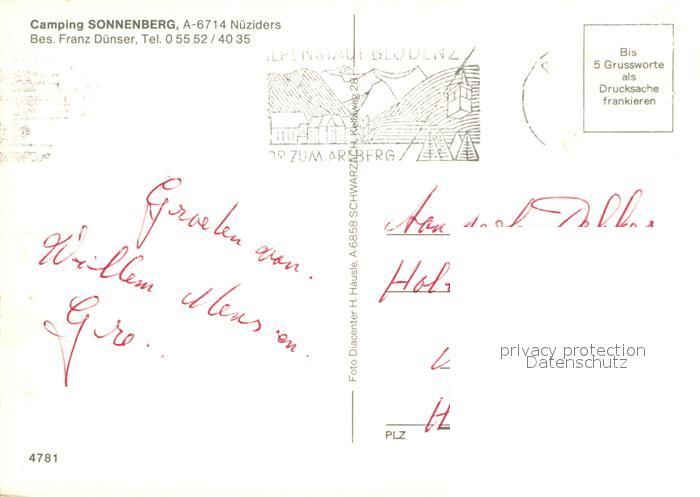 Camping SONNENBERG, A-6714 Nüziders
Bes. Franz Dünser, Tel. 0 55 52 / 40 35
ALPENSTADT BLUDENZ
OR ZUM ARLBERG
Bis
5 Grussworte
als
Drucksache
frankieren
Groeten van.
Willem Mens en
Gre.
Foto Diacenter H. Häusle, A-6858 SCHWARZACH, Kellaweg 28
Aan
Hol
privacy protection
Datenschutz
H
PLZ
4781